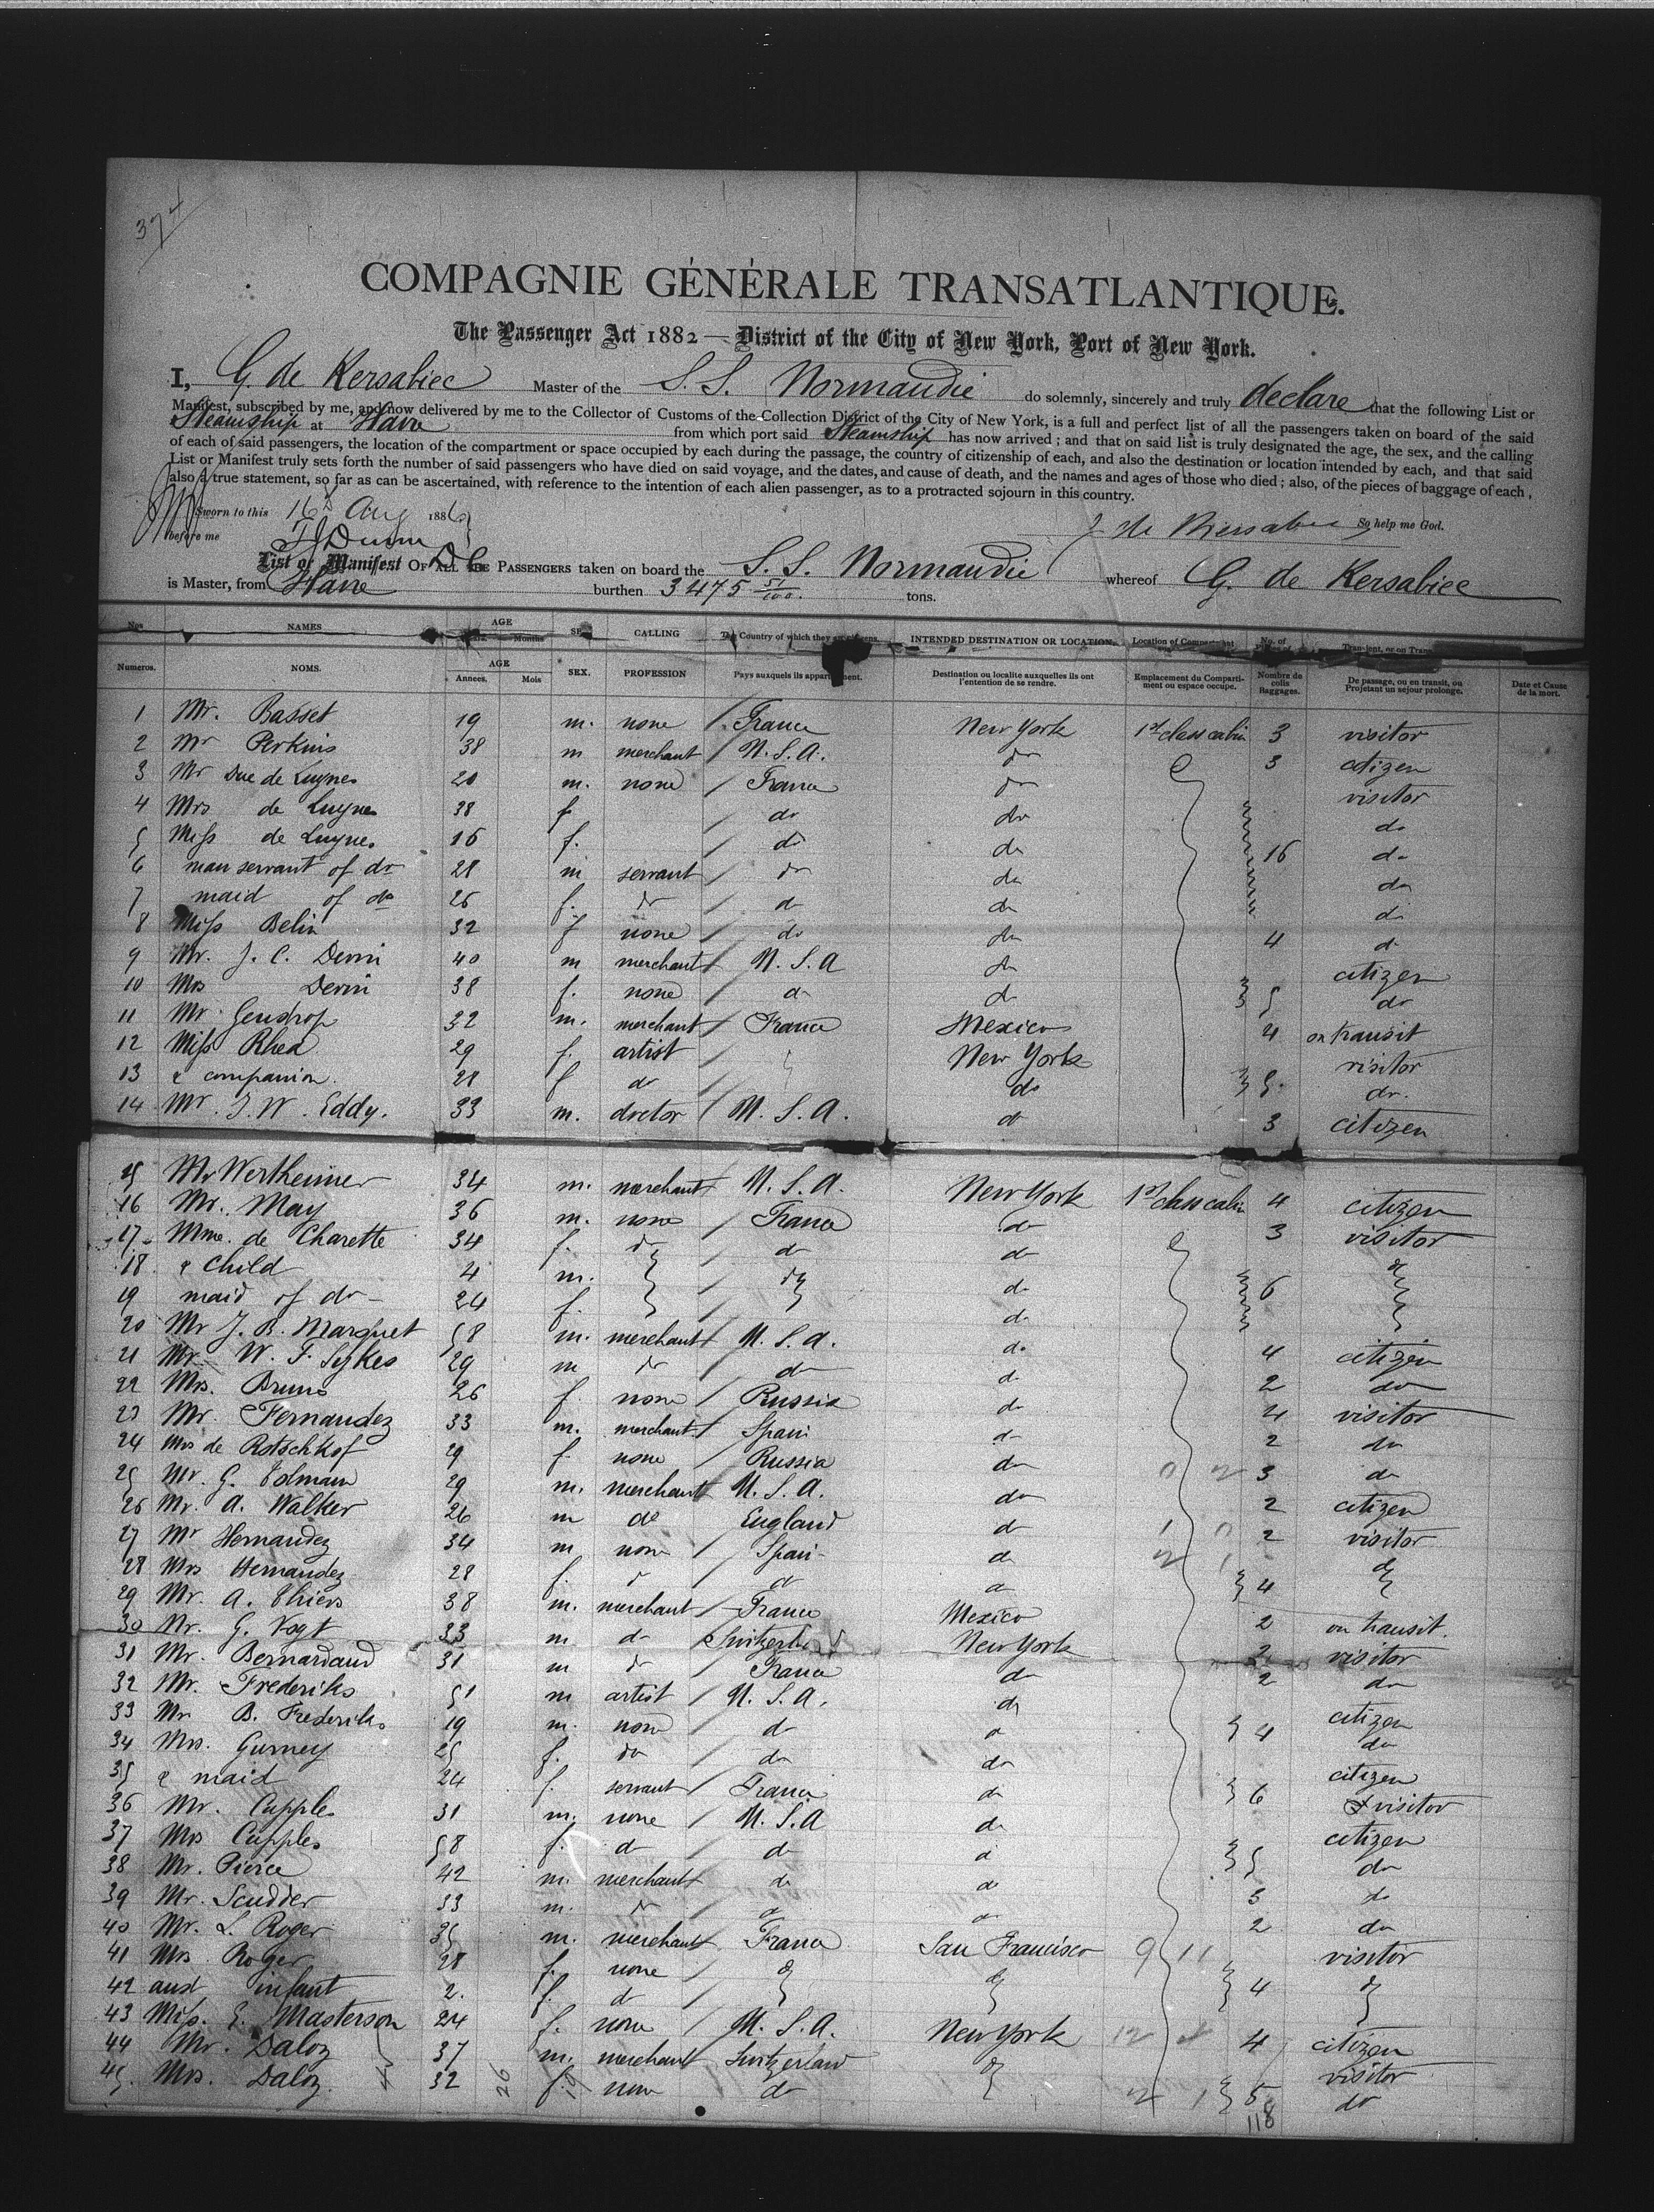 374
COMPAGNIE GÉNÉRALE TRANSATLANTIQUE.
The Passenger Act 1882 — District of the City of New York, Port of New York.
I, G. de Kersabiec Master of the S.S. Normandie do solemnly, sincerely and truly declare that the following List or
Manifest, subscribed by me, and now delivered by me to the Collector of Customs of the Collection District of the City of New York, is a full and perfect list of all the passengers taken on board of the said
Steamship at Havre from which port said Steamship has now arrived; and that on said list is truly designated the age, the sex, and the calling
of each of said passengers, the location of the compartment or space occupied by each during the passage, the country of citizenship of each, and also the destination or location intended by each, and that said
List or Manifest truly sets forth the number of said passengers who have died on said voyage, and the dates, and cause of death, and the names and ages of those who died; also, of the pieces of baggage of each,
also a true statement, so far as can be ascertained, with reference to the intention of each alien passenger, as to a protracted sojourn in this country.
Sworn to this 16 Aug 1886
before me So help me God.
G de Kersabiec
List or Manifest OF ALL THE PASSENGERS taken on board the S.S. Normandie whereof G. de Kersabiec
is Master, from Havre burthen 3475 51/100 tons.
Nos NAMES AGE Months SEX CALLING The Country of which they are citizens. INTENDED DESTINATION OR LOCATION Location of Compartment No. of
Numeros. NOMS. AGE Annees. Mois SEX. PROFESSION Pays auxquels ils appartiennent. Destination ou localite auxquelles ils ont l'entention de se rendre. Emplacement du Compartiment ou espace occupe. Nombre de colis Baggages. De passage, ou en transit, ou Projetant un sejour prolonge. Date et Cause de la mort.
1 Mr. Basset 19 m. none / France New York 1st class cabin 3 visitor
2 Mr Perkins 38 m merchant / U.S.A. do 3 citizen
3 Mr Duc de Luynes 20 m. none / France do visitor
4 Mrs de Luynes 38 f / do do do
5 Miss de Luynes 16 f. / do do 16 do
6 man servant of do 28 m servant / do do do
7 maid of do 26 f. do / do do do
8 Miss Belin 32 f none / do do 4 do
9 Mr. J. C. Devin 40 m merchant / U.S.A do citizen
10 Mrs Devin 38 f. none / do do 5 do
11 Mr. 32 m. merchant / France Mexico 4 on transit
12 Miss Rhea 29 f. artist / New York visitor
13 & companion. 28 f do / do 5. do.
14 Mr. J. W. Eddy. 33 m. doctor / U.S.A. do 3 citizen
15 Mr Wertheimer 34 m. merchant U.S.A. New York 1st class cabin 4 citizen
16 Mr. May 36 m. none / France do 3 visitor
17 Mme. de Charette 34 f. do / do do do
18 & Child 4 m. / do do 6
19 maid of do 24 f. / do
20 Mr J. B. Marquet 58 m. merchant / U.S.A. do 4 citizen
21 Mr. W. F. Sykes 29 m do / do do 2 do
22 Mrs. Bruno 26 f. none / Russia do 4 visitor
23 Mr. Fernandez 33 m. merchant / Spain do 2 do
24 Mrs de Rotschkof 29 f. none / Russia do 3 do
25 Mr. G. Tolman 29 m. merchant U.S.A. do 2 citizen
26 Mr. A. Walker 26 m do England do 2 visitor
27 Mr Hernandez 34 m none / Spain do do
28 Mrs Hernandez 28 f. do / do do 4
29 Mr. A. Thiers 38 m. merchant / France Mexico 2 on transit.
30 Mr. G. Vogt 33 m. do Switzerland New York 2 visitor
31 Mr. Bernardaud 31 m do / France do 2 do
32 Mr. Frederiks 51 m artist / U.S.A. do citizen
33 Mr B. Frederiks 19 m. none / do do 4 do
34 Mrs. Gurney 25 f. do / do do citizen
35 & maid 24 f. servant / France do 6 visitor
36 Mr. Cupples 31 m. none / U.S.A do citizen
37 Mrs Cupples 58 f. do / do do 5 do
38 Mr. Pierce 42 m. merchant do do 3 do
39 Mr. Scudder 33 m. do / do do 2 do
40 Mr. L. Roger 35 m. merchant France San Francisco 9 11 visitor
41 Mrs Roger 28 f. none / do do 4 do
42 and infant 2. f. do /
43 Miss. E. Masterson 24 f. none / U.S.A. New York 12 4 citizen
44 Mr. Daloz 37 m. merchant Switzerland do visitor
45. Mrs. Daloz 32 f. none do 2 1 5 do
26 19 118